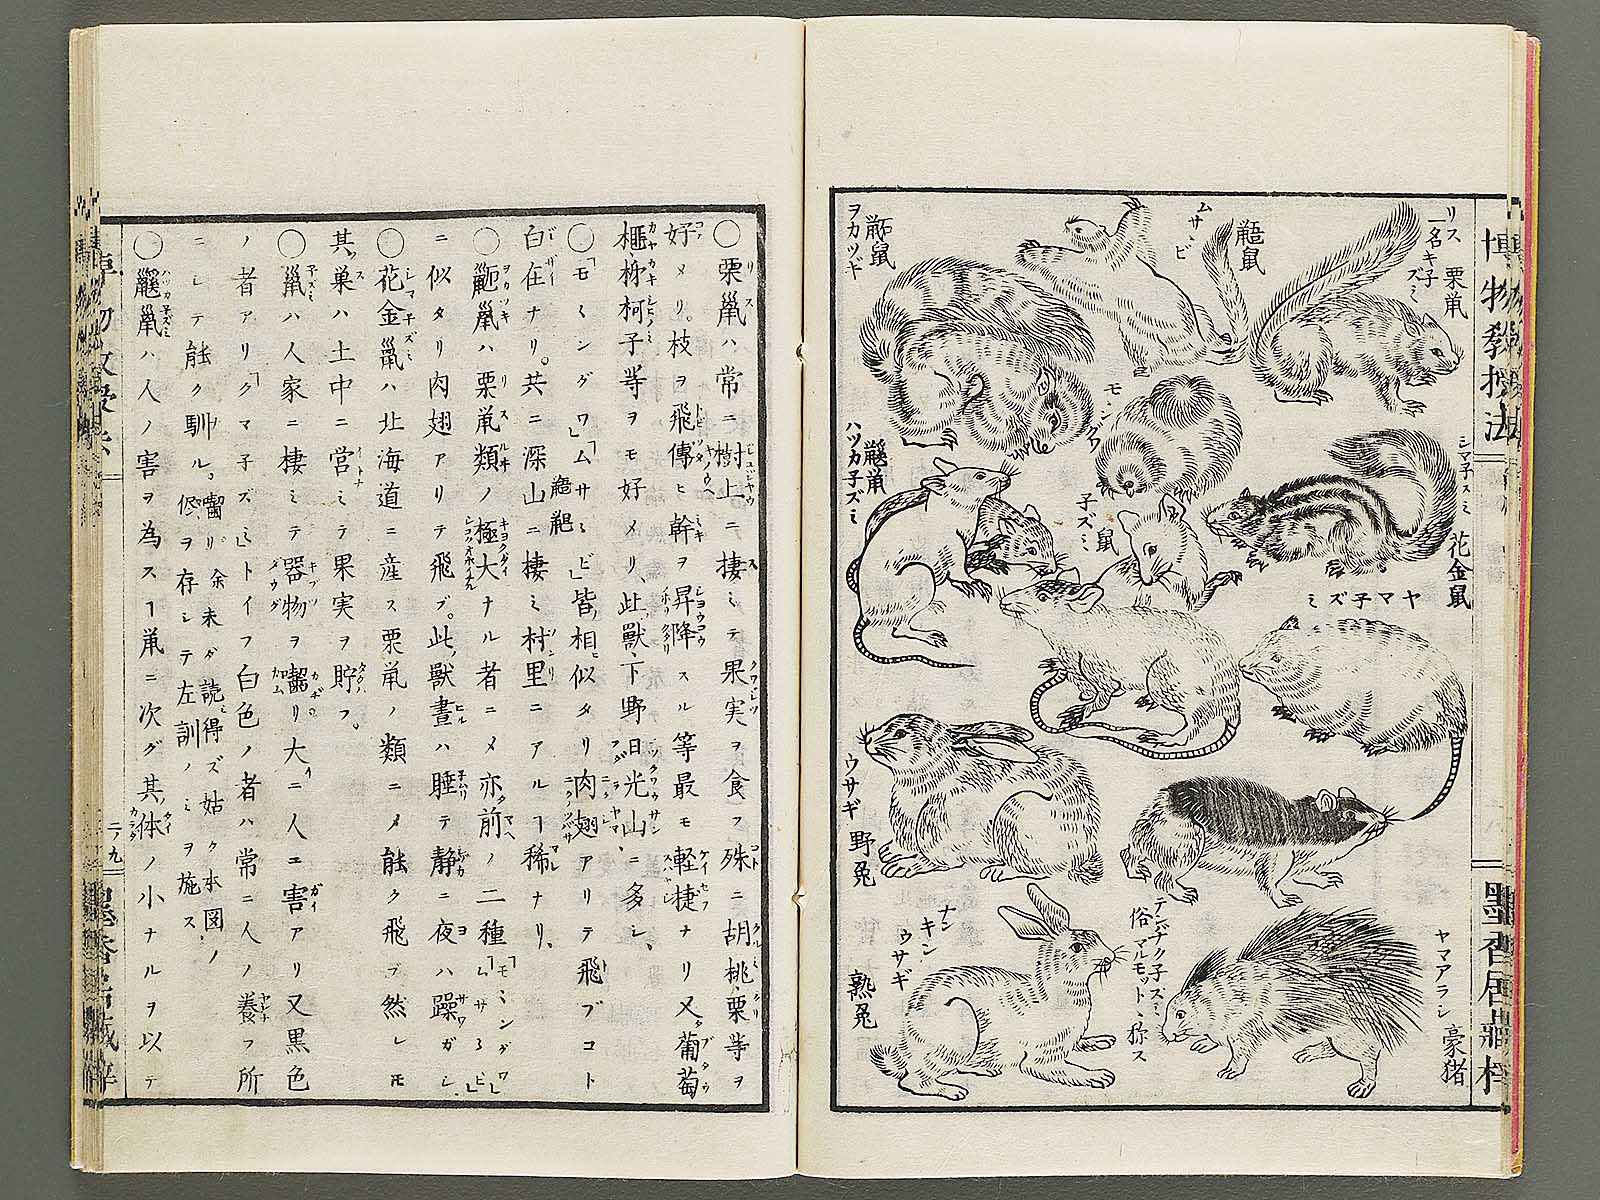 博物教授法
リス 栗鼡
一名キ子ズミ
鼯鼠
ムサヽビ
鼫鼠
ヲカツギ
モミングワ
シマ子スミ 花金鼠
鼠
子ズミ
鼷鼡
ハツカ子ズミ
ヤマ子ズミ
ウサギ 野兔
テンバナク子ズミ
俗マルモットヽ称ス
ナンキンウサギ
熟兔
ヤマアラシ
豪猪
墨香居
◯栗鼠ハ常ニ樹上ニ棲ミテ果実ヲ食フ殊ニ胡桃、栗等ヲ
好メリ。枝ヲ飛傳ヒ幹ヲ昇降スル等最モ軽捷ナリ又葡萄
榧、柹、柯子等ヲモ好メリ、此獣、下野日光山ニ多シ、
◯「モミングワ」「ムサヽビ」皆相似タリ肉翅アリテ飛ブコト
自在ナリ。共ニ深山ニ棲ミ村里ニアルヿ稀ナリ、
◯鼫鼠ハ栗鼡類ノ極大ナル者ニメ亦前ノ二種「モミングワ」「ムサヽビ」
ニ似タリ肉翅アリテ飛ブ。此獸晝ハ睡テ静ニ夜ハ躁ガシ
◯花金鼠ハ北海道ニ産ス栗鼡ノ類ニメ能ク飛ブ然レモ
其巣ハ土中ニ営ミテ果実ヲ貯フ。
◯鼠ハ人家ニ棲ミテ器物ヲ齧リ大ニ人ニ害アリ又黒色
ノ者アリ「クマ子ズミ」トイフ白色ノ者ハ常ニ人ノ養フ所
ニシテ能ク馴ル。余未ダ読得ズ姑ク本図ノ
ヲ存シテ左訓ノミヲ施ス
◯鼷鼠ハ人ノ害ヲ為スヿ鼡ニ次グ其体ノ小ナルヲ以テ
二ノ九